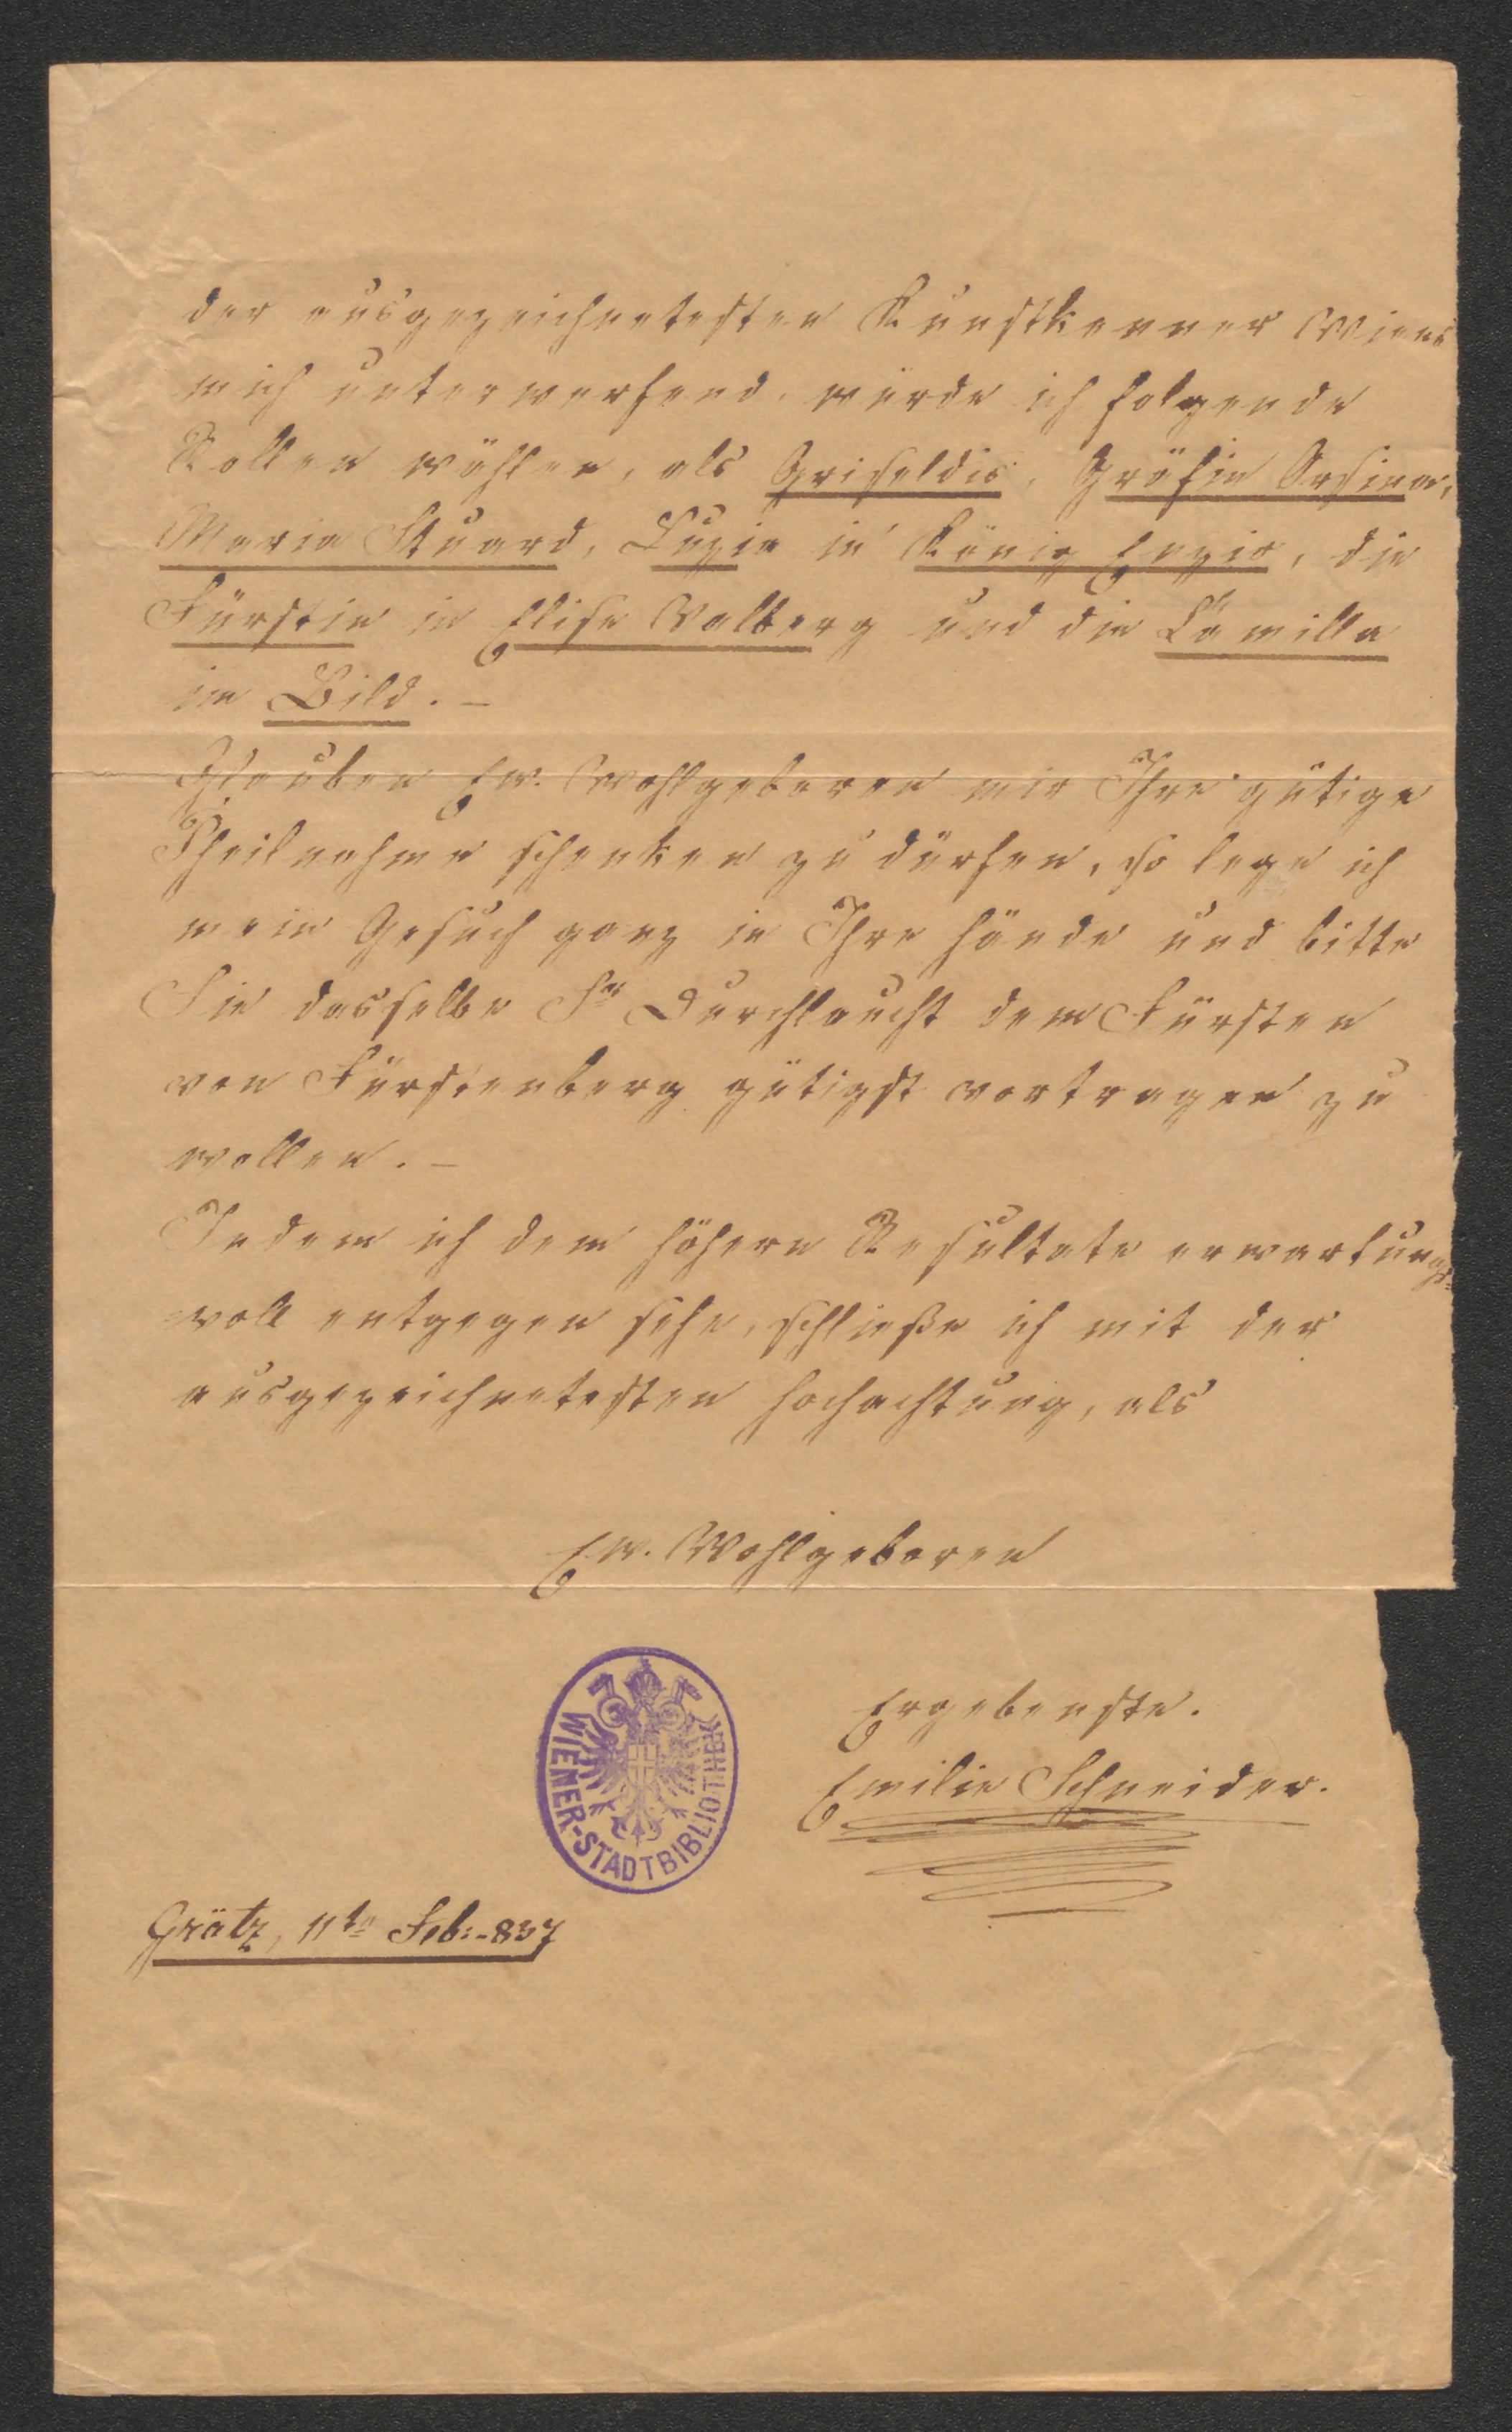 der ausgezeichnetesten Kunstkenner Wiens
mich unterwerfend, würde ich folgende
Rollen wählen, als Griseldis, Gräfin Orsina,
Maria Stuard, Luzia in König Enzio, die
Fürstin in Elise Valberg und die Camilla
im Bild. –
Glauben Ew. Wohlgeboren mir Ihre gütige
Theilnahme schenken zu dürfen, so lege ich
mein Gesuch ganz in Ihre Hände und bitte
Sie dasselbe Sr Durchlaucht dem Fürsten
von Fürstenberg gütigst vortragen zu
wollen. –
Indem ich dem höhern Resultate erwartungs-
voll entgegen sehe, schließe ich mit der
ausgezeichnetesten Hochachtung, als
Ew. Wohlgeboren
Ergebenste.
Emilie Schneider.
WIENER-STADTBIBLIOTHEK
Grätz, 11te Feb:-837